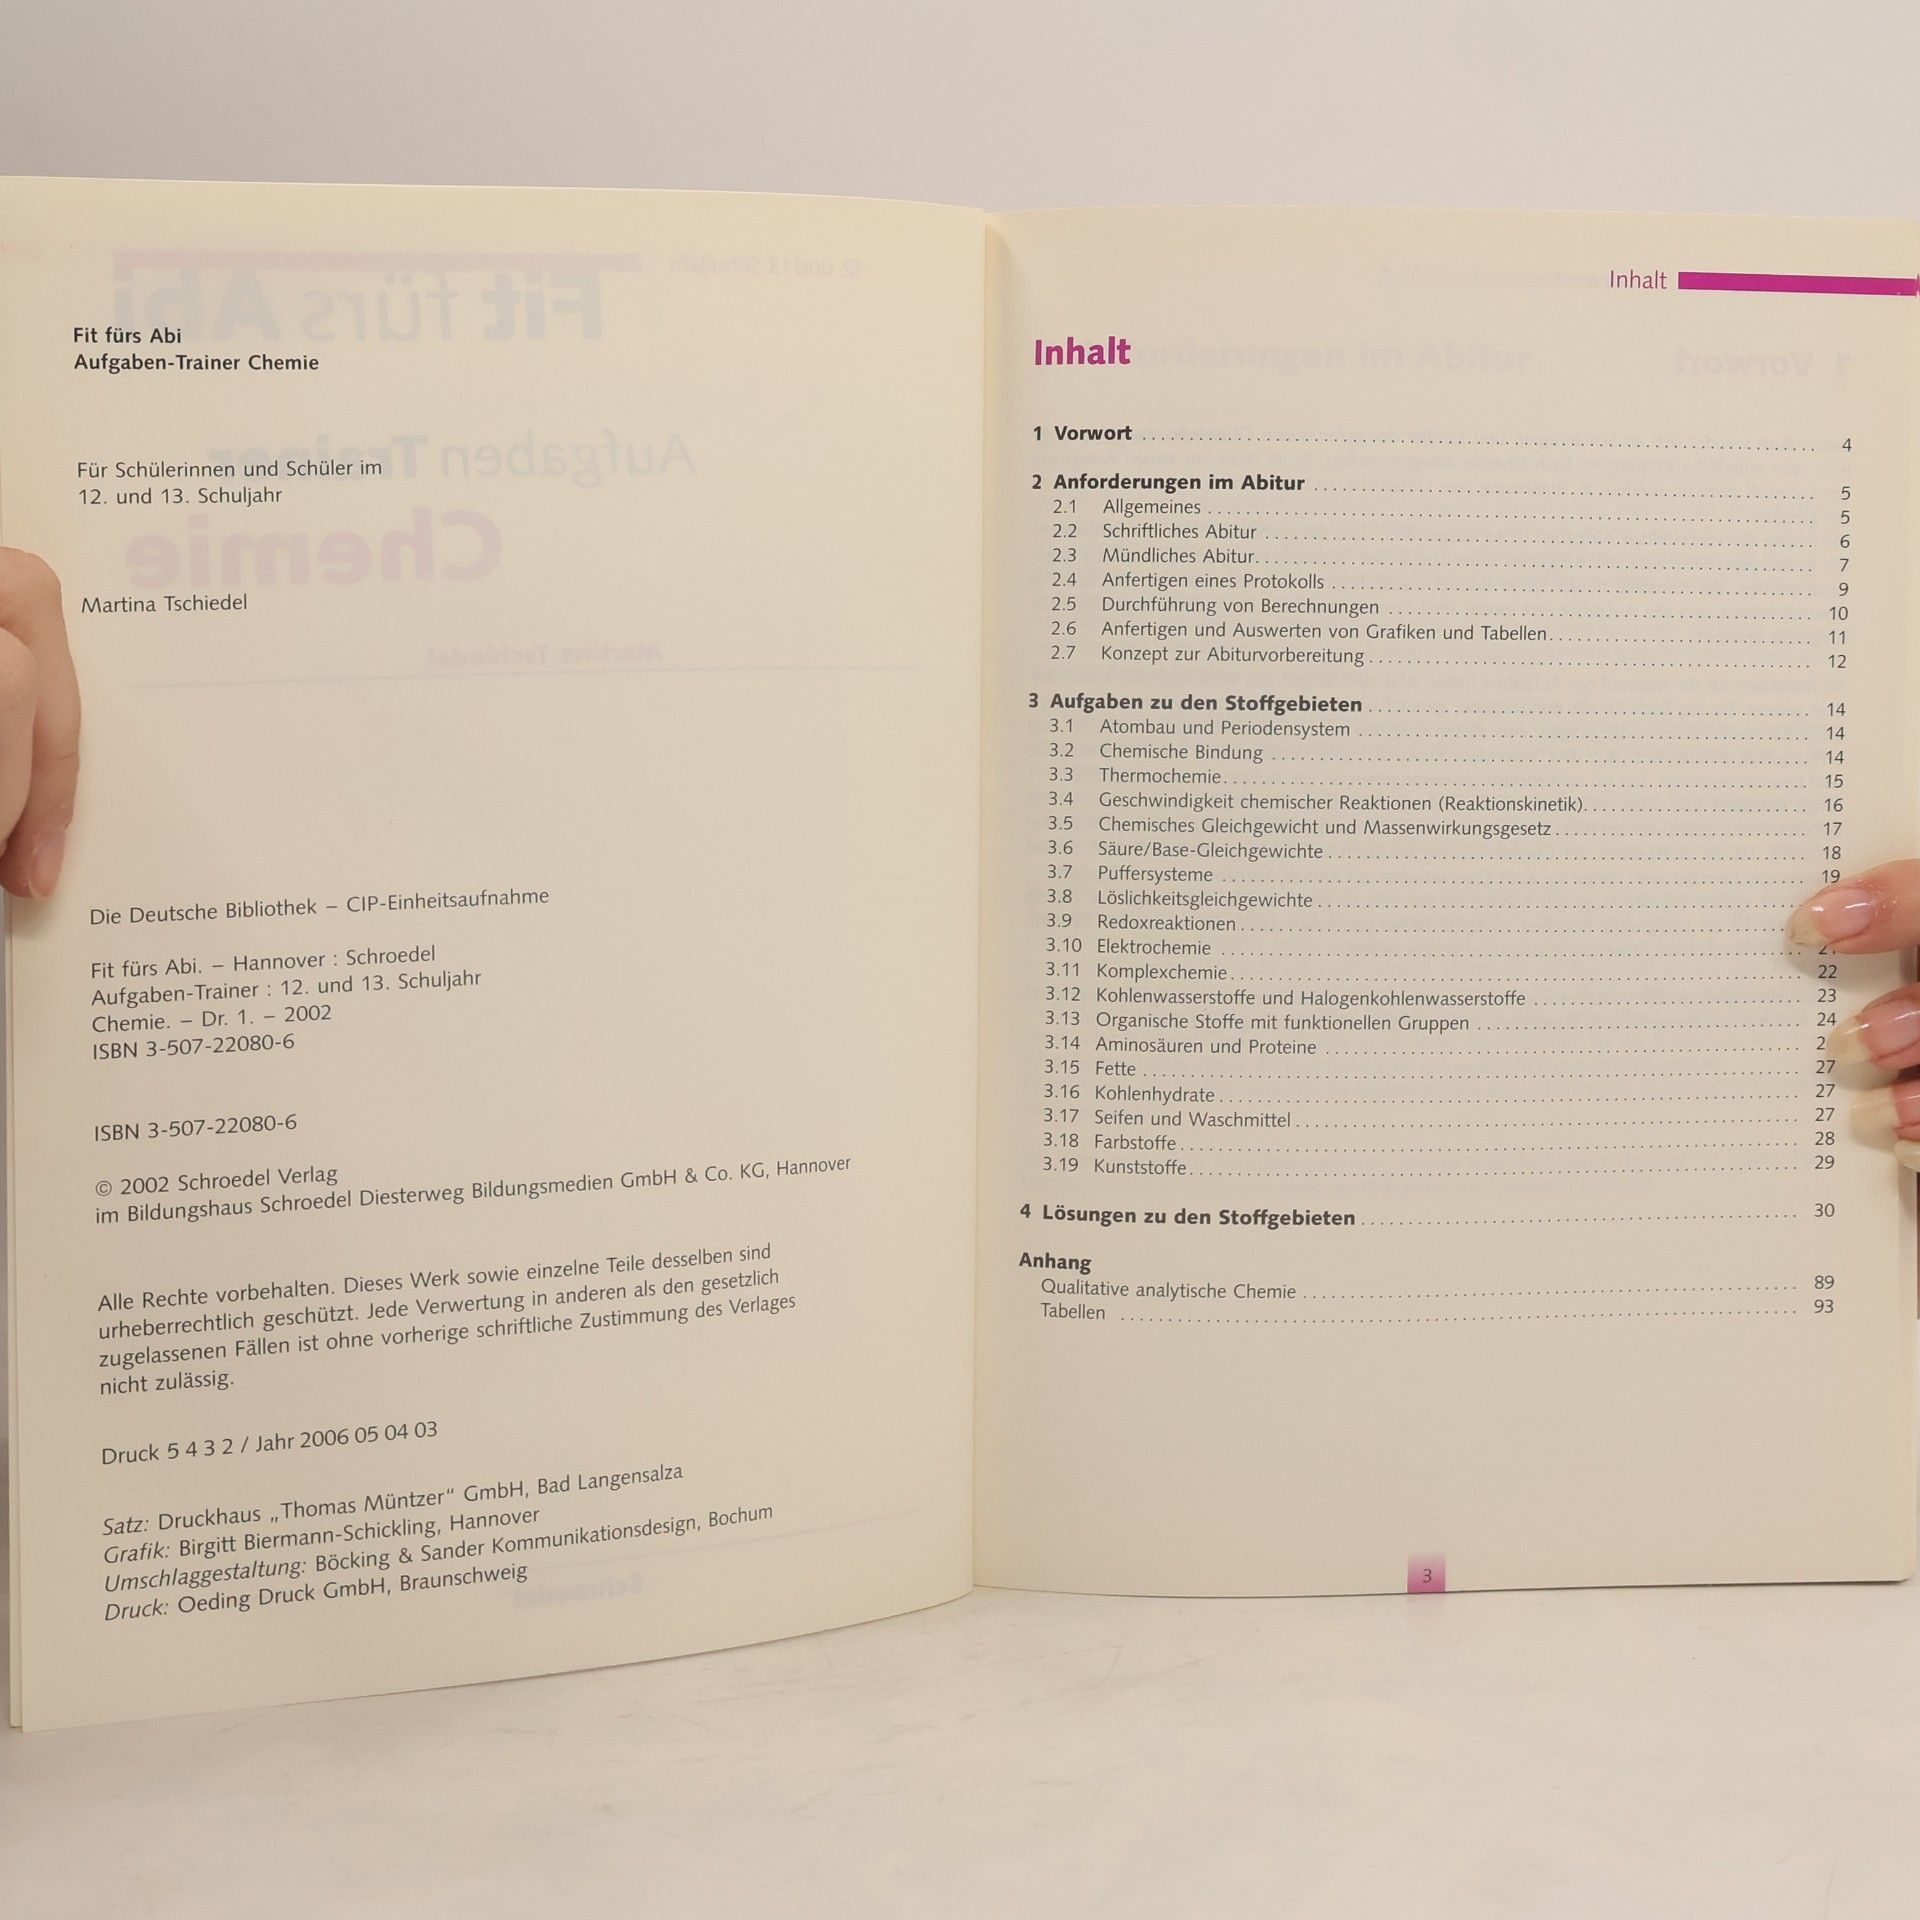 Fit fürs Abi
Aufgaben-Trainer Chemie
Für Schülerinnen und Schüler im
12. und 13. Schuljahr
Martina Tschiedel
Die Deutsche Bibliothek – CIP-Einheitsaufnahme
Fit fürs Abi. – Hannover : Schroedel
Aufgaben-Trainer : 12. und 13. Schuljahr
Chemie. – Dr. 1. – 2002
ISBN 3-507-22080-6
ISBN 3-507-22080-6
© 2002 Schroedel Verlag
im Bildungshaus Schroedel Diesterweg Bildungsmedien GmbH & Co. KG, Hannover
Alle Rechte vorbehalten. Dieses Werk sowie einzelne Teile desselben sind
urheberrechtlich geschützt. Jede Verwertung in anderen als den gesetzlich
zugelassenen Fällen ist ohne vorherige schriftliche Zustimmung des Verlages
nicht zulässig.
Druck 5 4 3 2 / Jahr 2006 05 04 03
Satz: Druckhaus „Thomas Müntzer“ GmbH, Bad Langensalza
Grafik: Birgitt Biermann-Schickling, Hannover
Umschlaggestaltung: Böcking & Sander Kommunikationsdesign, Bochum
Druck: Oeding Druck GmbH, Braunschweig
Inhalt
Inhalt
1 Vorwort 4
2 Anforderungen im Abitur 5
2.1 Allgemeines 5
2.2 Schriftliches Abitur 6
2.3 Mündliches Abitur 7
2.4 Anfertigen eines Protokolls 9
2.5 Durchführung von Berechnungen 10
2.6 Anfertigen und Auswerten von Grafiken und Tabellen 11
2.7 Konzept zur Abiturvorbereitung 12
3 Aufgaben zu den Stoffgebieten 14
3.1 Atombau und Periodensystem 14
3.2 Chemische Bindung 14
3.3 Thermochemie 15
3.4 Geschwindigkeit chemischer Reaktionen (Reaktionskinetik) 16
3.5 Chemisches Gleichgewicht und Massenwirkungsgesetz 17
3.6 Säure/Base-Gleichgewichte 18
3.7 Puffersysteme 19
3.8 Löslichkeitsgleichgewichte
3.9 Redoxreaktionen
3.10 Elektrochemie
3.11 Komplexchemie 22
3.12 Kohlenwasserstoffe und Halogenkohlenwasserstoffe 23
3.13 Organische Stoffe mit funktionellen Gruppen 24
3.14 Aminosäuren und Proteine
3.15 Fette 27
3.16 Kohlenhydrate 27
3.17 Seifen und Waschmittel 27
3.18 Farbstoffe 28
3.19 Kunststoffe 29
4 Lösungen zu den Stoffgebieten 30
Anhang
Qualitative analytische Chemie 89
Tabellen 93
3